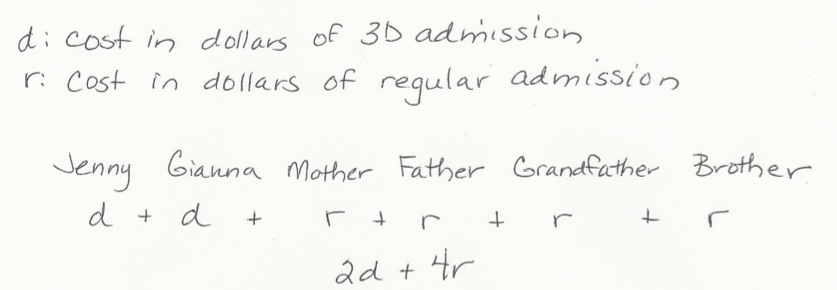 d: cost in dollars of 3D admission
r: cost in dollars of regular admission
Jenny Gianna Mother Father Grandfather Brother
d + d + r + r + r + r
2d + 4r